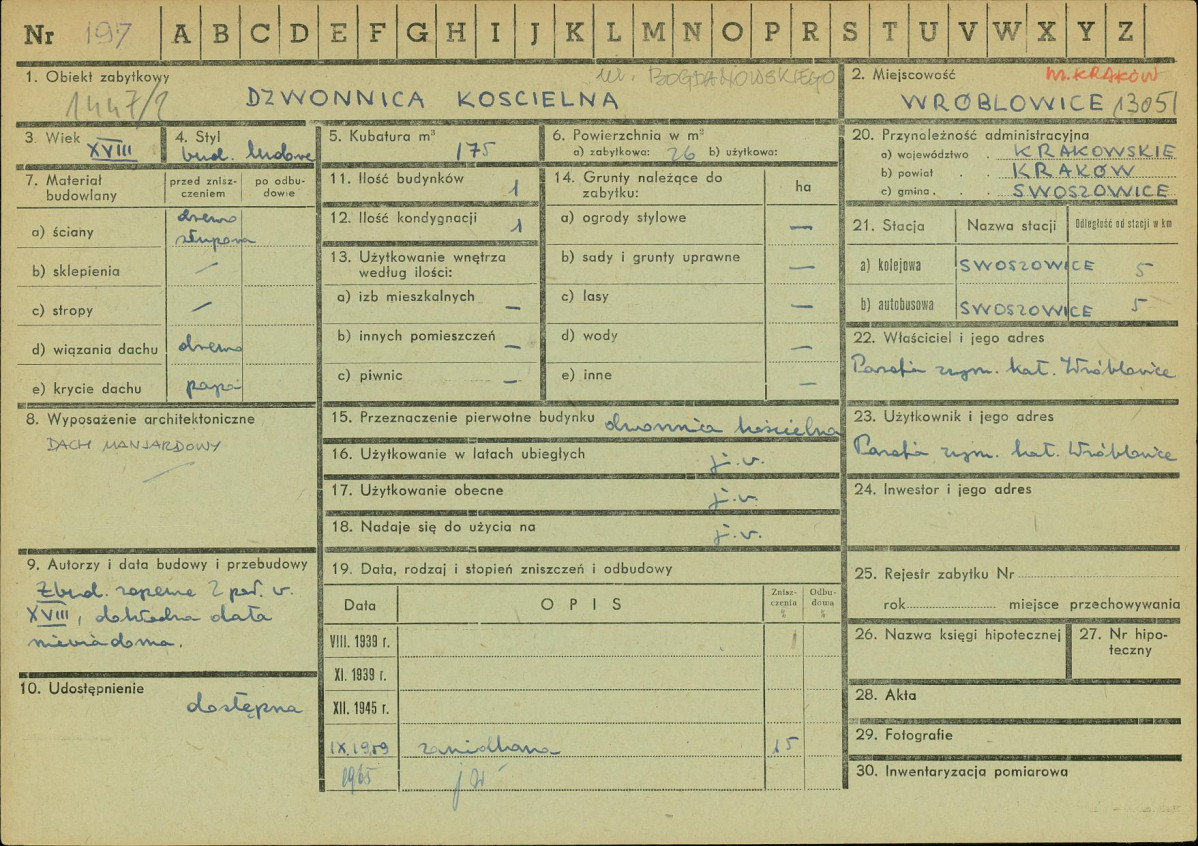 Nr 197 A B C D E F G H I J K L M N O P R S T U V W X Y Z
1. Obiekt zabytkowy
ul. BOGDANOWSKIEGO
1447/2
DZWONNICA KOSCIELNA
2. Miejscowość
M. KRAKÓW
WRÓBLOWICE 13051
3. Wiek
XVIII
4. Styl
bud. ludowe
5. Kubatura m³
175
6. Powierzchnia w m²
a) zabytkowa: 26 b) użytkowa:
7. Materiał budowlany
przed zniszczeniem
po odbudowie
a) ściany
drewno
słupowa
b) sklepienia —
c) stropy —
d) wiązania dachu drewno
e) krycie dachu papa
8. Wyposażenie architektoniczne
DACH MANSARDOWY
—
9. Autorzy i data budowy i przebudowy
Zbud. zapewne 2 poł. w.
XVIII, dokładna data
niewiadoma.
10. Udostępnienie
dostępna
11. Ilość budynków 1
12. Ilość kondygnacji 1
13. Użytkowanie wnętrza
według ilości:
a) izb mieszkalnych —
b) innych pomieszczeń —
c) piwnic —
14. Grunty należące do
zabytku:
ha
a) ogrody stylowe —
b) sady i grunty uprawne —
c) lasy —
d) wody —
e) inne —
15. Przeznaczenie pierwotne budynku dzwonnica kościelna
16. Użytkowanie w latach ubiegłych j.w.
17. Użytkowanie obecne j.w.
18. Nadaje się do użycia na j.w.
19. Data, rodzaj i stopień zniszczeń i odbudowy
Data
OPIS
Zniszczenia %
Odbudowa %
VIII. 1939 r.
XI. 1939 r.
XII. 1945 r.
IX.1959 zaniedbana 15
1965 jw
20. Przynależność administracyjna
a) województwo . KRAKOWSKIE
b) powiat . . KRAKÓW
c) gmina . . SWOSZOWICE
21. Stacja
Nazwa stacji
Odległość od stacji w km
a) kolejowa SWOSZOWICE 5
b) autobusowa SWOSZOWICE 5
22. Właściciel i jego adres
Parafia rzym. kat. Wróblowice
23. Użytkownik i jego adres
Parafia rzym. kat. Wróblowice
24. Inwestor i jego adres
25. Rejestr zabytku Nr
rok miejsce przechowywania
26. Nazwa księgi hipotecznej
27. Nr hipoteczny
28. Akta
29. Fotografie
30. Inwentaryzacja pomiarowa